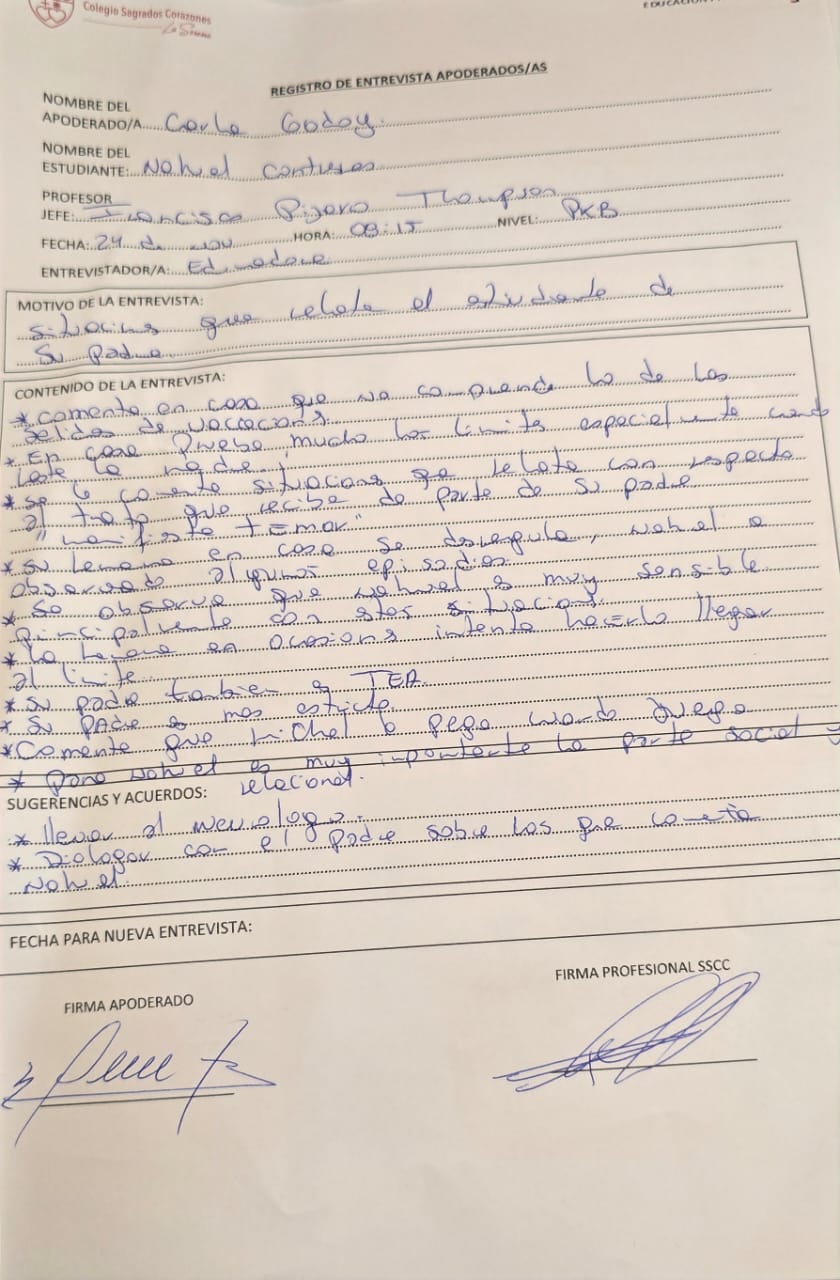 Colegio Sagrados Corazones
La Serena
REGISTRO DE ENTREVISTA APODERADOS/AS
NOMBRE DEL
APODERADO/A: Carla Godoy.
NOMBRE DEL
ESTUDIANTE: Nahuel Contreras
PROFESOR
JEFE: Francisca Pizarro Thompson
FECHA: 24 de nov HORA: 08:15 NIVEL: PKB
ENTREVISTADOR/A: Educadora
MOTIVO DE LA ENTREVISTA:
situacions que relata el estudiante de
su padre
CONTENIDO DE LA ENTREVISTA:
* Comenta en casa que no comprende lo de las
salidas de vacacions
* En casa prueba mucho los limites especialmente cuando
esta la madre
* Se le comenta situacions que relata con respecto
al trato que recibe de parte de su padre
"manifiesta temor"
* Su hermano en casa se desregula, Nahuel a
observado algunos episodios.
* Se observa que Nahuel es muy sensible
principalmente con estas situacions.
* La hermana en ocasions intenta hacerlo llegar
al limite.
* Su padre tambien es TEA.
* Su padre es mas estricto.
* Comenta que Michel lo pega cuando juega
* Para Nahuel es muy importante la parte social y
relacional.
SUGERENCIAS Y ACUERDOS:
* llevar al neurologo.
* Dialogar con el padre sobre los que comenta
Nahuel
FECHA PARA NUEVA ENTREVISTA:
FIRMA PROFESIONAL SSCC
FIRMA APODERADO